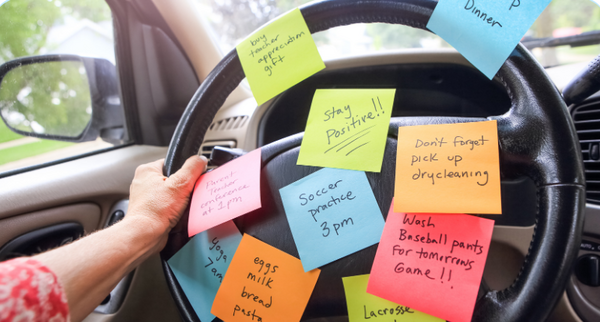 buy
teacher
appreciation
gift
P
Dinner
Stay
Positive!!
Don't Forget
pick up
drycleaning
Parent Teacher
conference
at 1pm
Soccer
practice
3pm
Wash
Baseball pants
For tomorrows
Game!!
Yoga
7am
eggs
milk
bread
pasta
Lacrosse